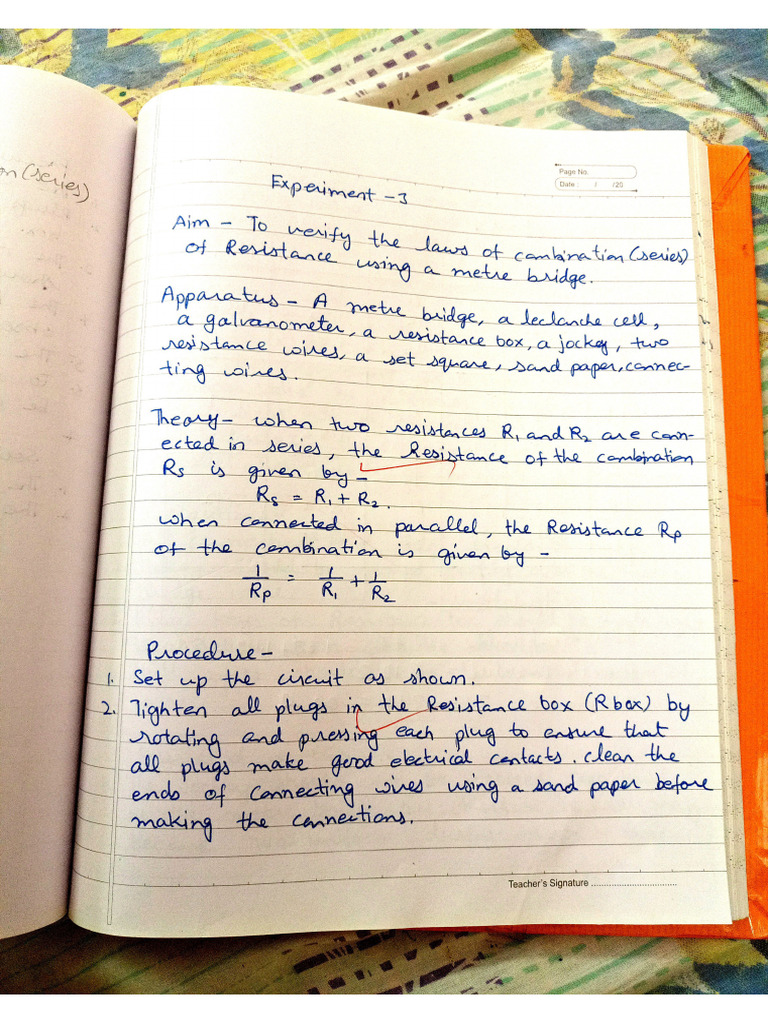 on (series)
Page No.
Date : / /20
Experiment - 3
Aim - To verify the laws of combination (series)
of Resistance using a metre bridge.
Apparatus - A metre bridge, a leclanche cell,
a galvanometer, a resistance box, a jockey, two
resistance wires, a set square, sand paper, connec-
ting wires.
Theory - when two resistances R₁ and R₂ are conn-
ected in series, the Resistance of the combination
Rs is given by -
Rs = R₁ + R₂.
when connected in parallel, the Resistance Rp
of the combination is given by -
1/Rp = 1/R₁ + 1/R₂
Procedure -
1. Set up the circuit as shown.
2. Tighten all plugs in the Resistance box (R box) by
rotating and pressing each plug to ensure that
all plugs make good electrical contacts. clean the
ends of connecting wires using a sand paper before
making the connections.
Teacher's Signature ................................